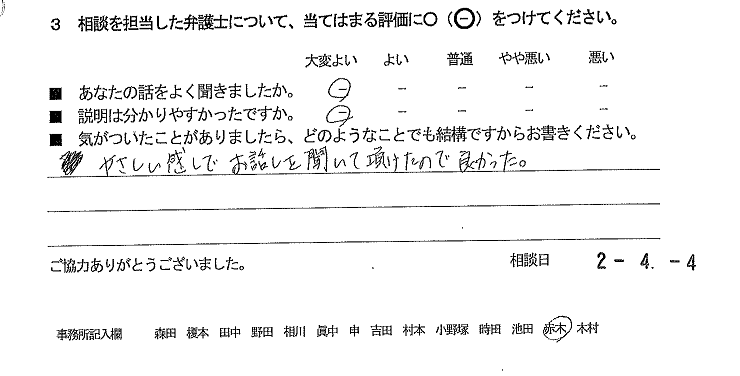 3 相談を担当した弁護士について、当てはまる評価に○（㊀）をつけてください。
大変よい よい 普通 やや悪い 悪い
■ あなたの話をよく聞きましたか。 － － － － －
■ 説明は分かりやすかったですか。 － － － － －
■ 気がついたことがありましたら、どのようなことでも結構ですからお書きください。
やさしい感じでお話しを聞いて頂けたので良かった。
ご協力ありがとうございました。 相談日 2－4.－4
事務所記入欄 森田 榎本 田中 野田 相川 眞中 申 吉田 村本 小野塚 時田 池田 赤木 木村